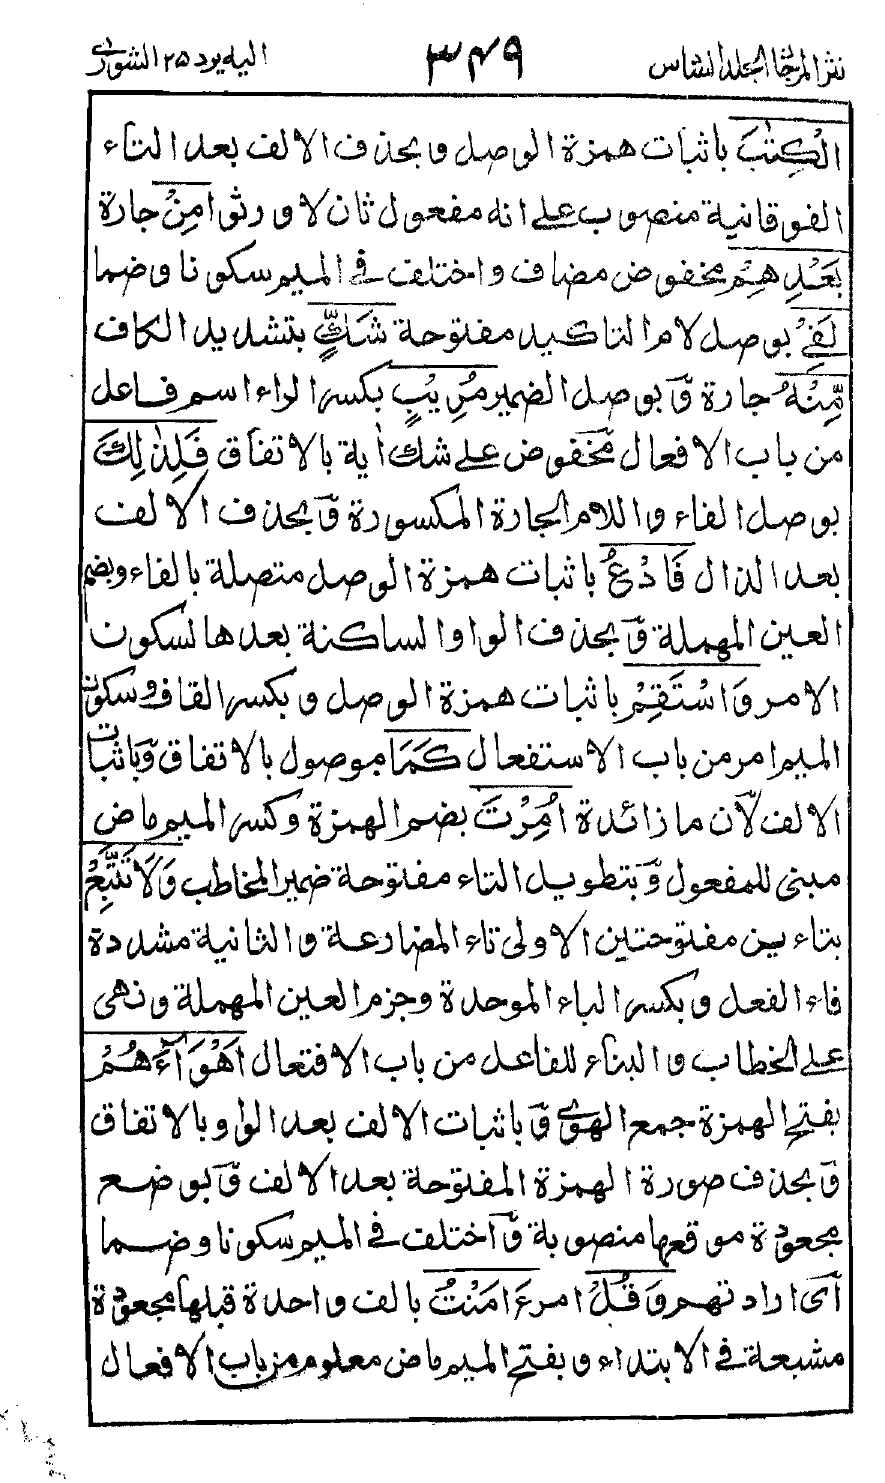 نثر المرجان المجلد السادس ٣٤٩ اليه يرد ٢٥ الشورى
الْكِتٰبَ باثبات همزة الوصل و بحذف الالف بعد التاء
الفوقانية منصوب على انه مفعول ثان لاورثوا مِنْ جارة
بَعْدِهِمْ مخفوض مضاف واختلف فى الميم سكونا وضما
لَفِىْ بوصل لام التاكيد مفتوحة شَكٍّ بتشديد الكاف
مِّنْهُ جارة وَبوصل الضمير مُرِيْبٍ بكسر الراء اسم فاعل
من باب الافعال مخفوض على شك اٰية بالاتفاق فَلِذٰلِكَ
بوصل الفاء واللام الجارة المكسورة وَبحذف الالف
بعد الذال فَادْعُ باثبات همزة الوصل متصلة بالفاء وبضم
العين المهملة وَبحذف الواو الساكنة بعدها لسكون
الامر وَاسْتَقِمْ باثبات همزة الوصل و بكسر القاف وسكون
الميم امر من باب الاستفعال كَمَا موصول بالاتفاق وَباثبات
الالف لان ما زائدة اُمِرْتَ بضم الهمزة وكسر الميم ماض
مبنى للمفعول وَبتطويل التاء مفتوحة ضمير المخاطب وَلَا تَتَّبِعْ
بتاءين مفتوحتين الاولى تاء المضارعة والثانية مشددة
فاء الفعل وبكسر الباء الموحدة وجزم العين المهملة ونهى
على الخطاب والبناء للفاعل من باب الافتعال اَهْوَآءَهُمْ
بفتح الهمزة جمع الهوى وَباثبات الالف بعد الواو بالاتفاق
وَبحذف صورة الهمزة المفتوحة بعد الالف وَبوضع
مجعودة موقعها منصوبة وَاختلف فى الميم سكونا وضما
اى ارادتهم وَقُلْ امر ءَامَنْتُ بالف واحدة قبلها مجعودة
مشبعة فى الابتداء وبفتح الميم ماض معلوم من باب الافعال